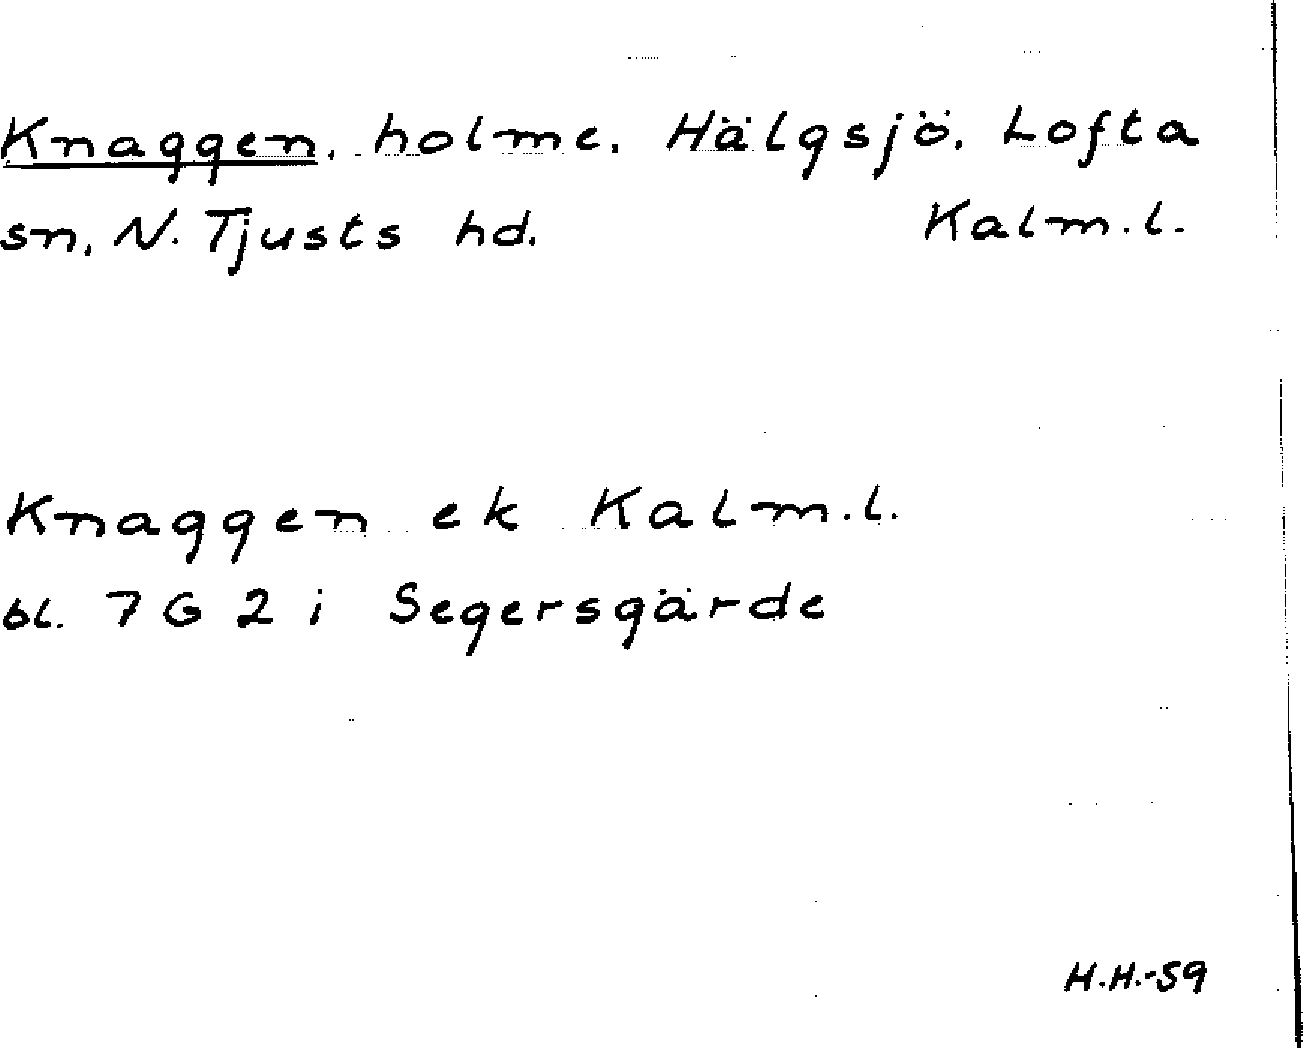 Knaggen, holme, Hälgsjö, Lofta
sn, N. Tjusts hd. Kalm.l.
Knaggen ek Kalm.l.
bl. 7 G 2 i Segersgärde
H.H.-59